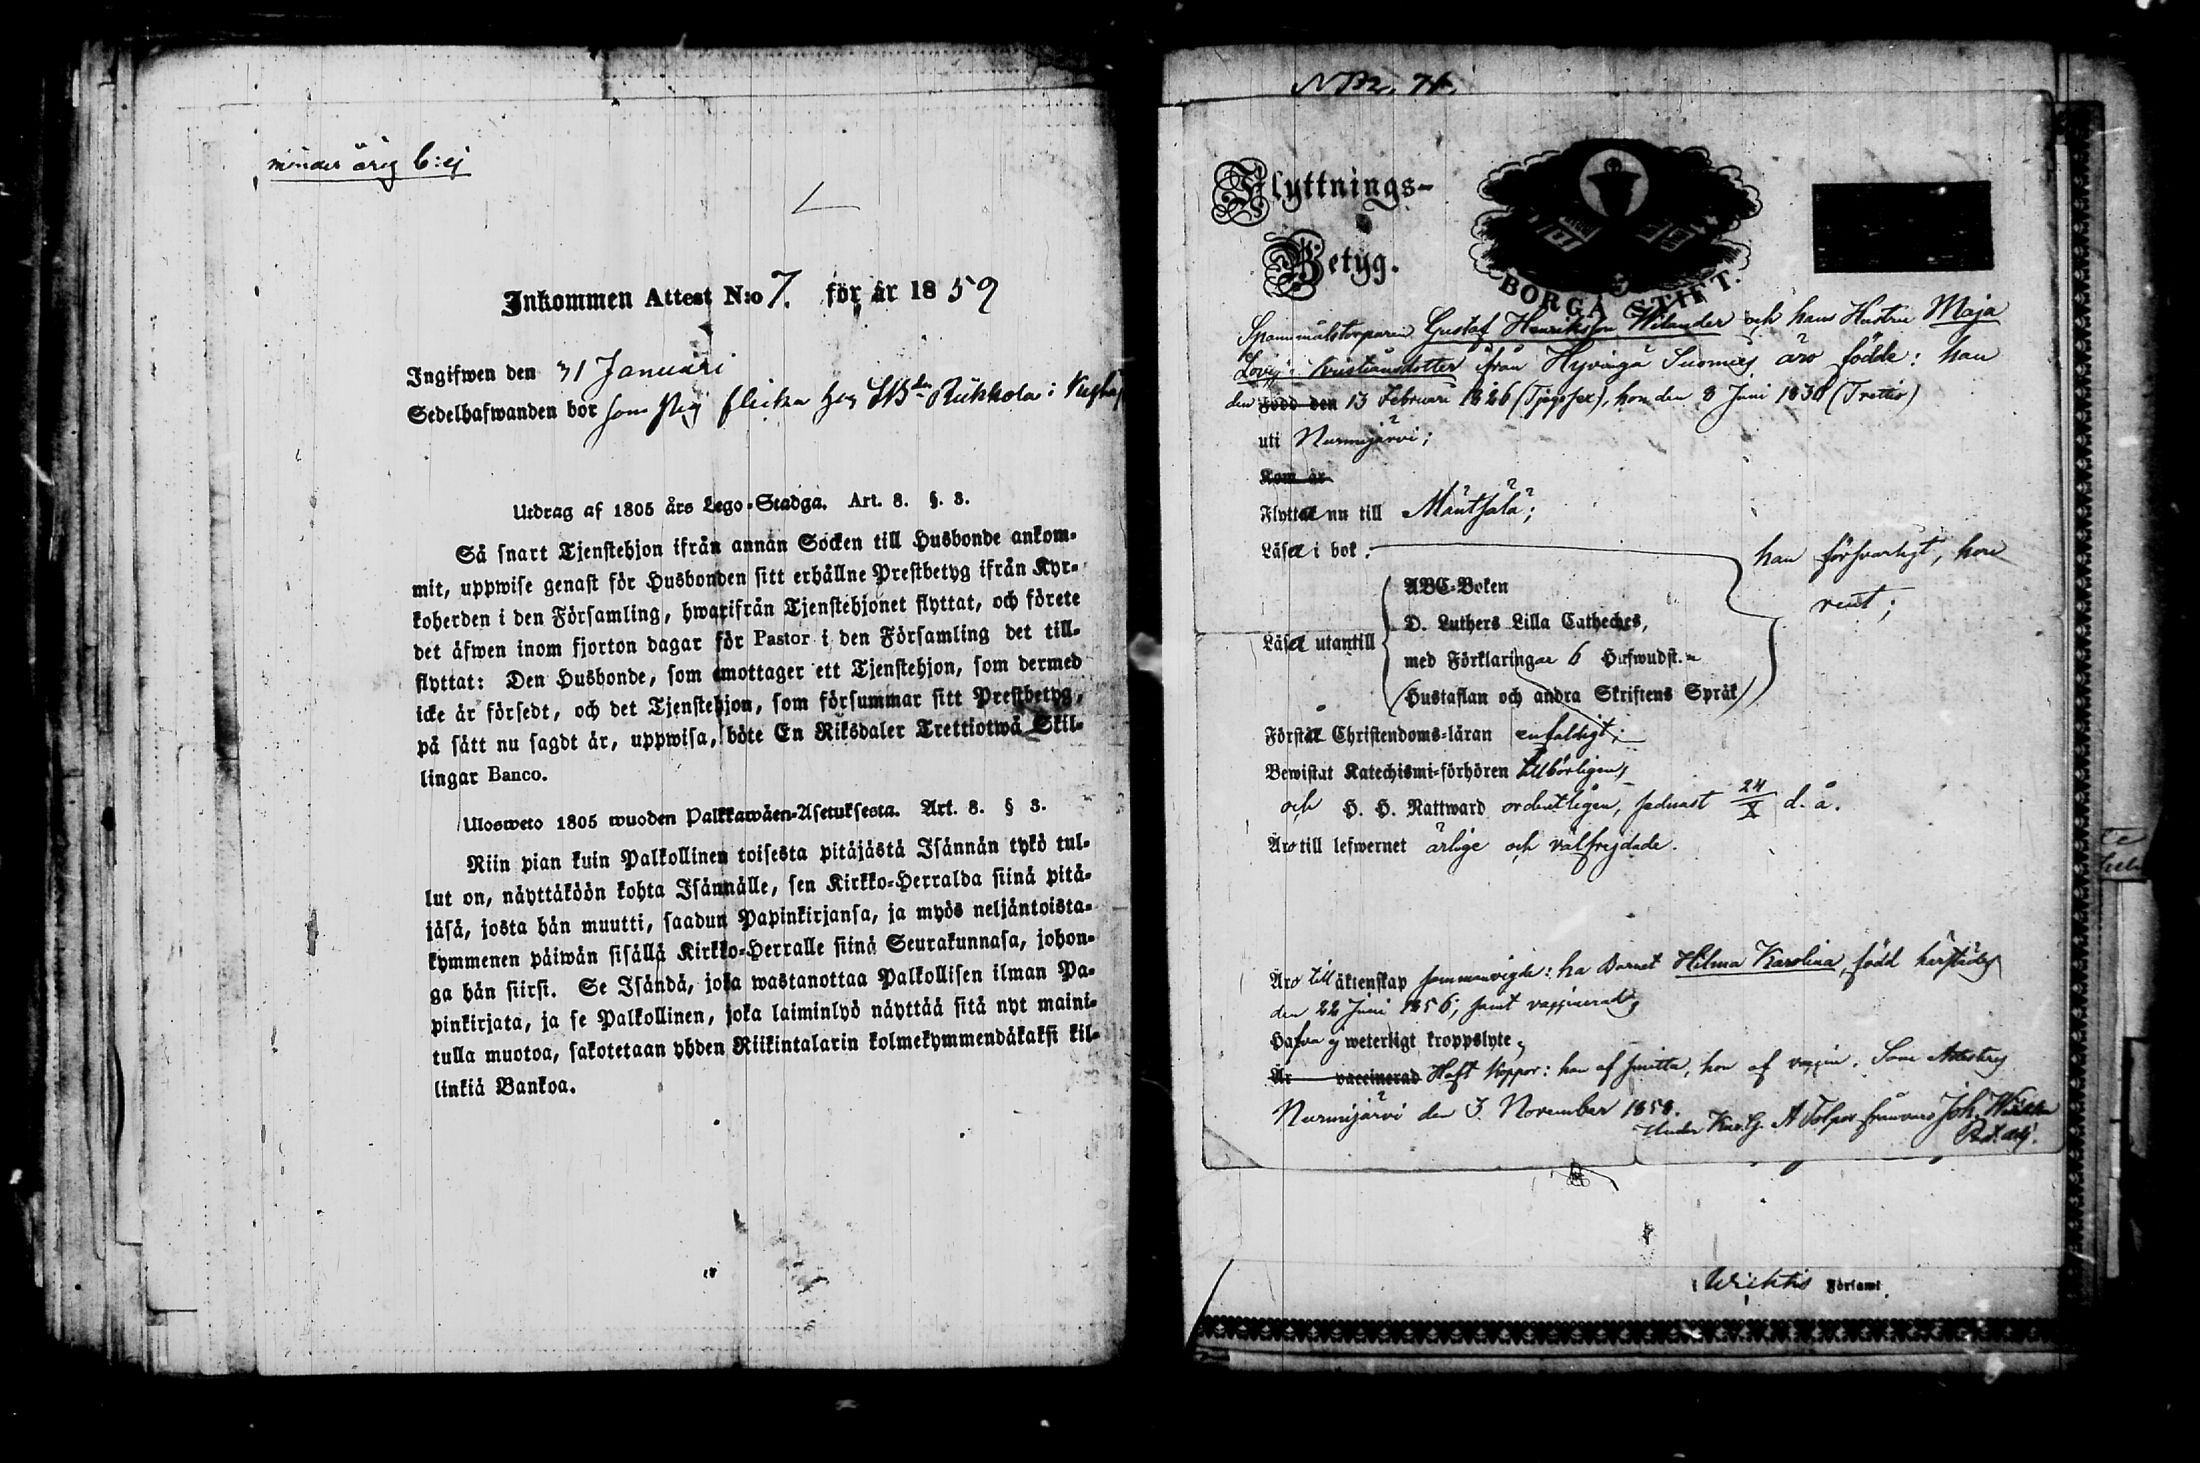 minder årig b:ej
Inkommen Attest N:o 7. för år 1859
Ingifwen den 31 Januari
Sedelhafwanden bor som Pig flicka hos
Utdrag af 1805 års Lego-Stadga. Art. 8. §. 3.
Så snart Tjenstehjon ifrån annan Socken till Husbonde ankom-
mit, uppwise genast för Husbonden sitt erhållne Prestbetyg ifrån Kyr-
koherden i den Församling, hwarifrån Tjenstehjonet flyttat, och förete
det äfwen inom fjorton dagar för Pastor i den Församling det till-
flyttat: Den Husbonde, som emottager ett Tjenstehjon, som dermed
icke är försedt, och det Tjenstehjon, som försummar sitt Prestbetyg,
på sätt nu sagdt är, uppwisa, böte En Riksdaler Trettiotwå Skil-
lingar Banco.
Ulosweto 1805 wuoden Palkkawäen-Asetuksesta. Art. 8. § 3.
Niin pian kuin Palkollinen toisesta pitäjästä Isännän tykö tul-
lut on, näyttäköön kohta Isännälle, sen Kirkko-Herralda siinä pitä-
jäsä, josta hän muutti, saadun Papinkirjansa, ja myös neljäntoista-
kymmenen päiwän sisällä Kirkko-Herralle siinä Seurakunnasa, johon-
ga hän siirsi. Se Isändä, joka wastanottaa Palkollisen ilman Pa-
pinkirjata, ja se Palkollinen, joka laiminlyö näyttää sitä nyt maini-
tulla muotoa, sakotetaan yhden Riikintalarin kolmekymmendäkaksi kil-
linkiä Bankoa.
Flyttnings-
Betyg.
BORGÅ STIFT.
Spannmålstorparen Gustaf Henriksson Wilander och hans Hustru Maja
Lovisa Kristiansdotter från Hyvingä äro födde: han
den Född den 13 Februari 1826 (Tjugusex), hon den 8 Juni 1830 (Trettio)
uti Nurmijärvi;
Kom år
Flytta nu till Mäntsälä;
Läsa i bok: han försvarligt, hon
rent;
ABC-Boken
D. Luthers Lilla Catheches,
Läsa utantill
med Förklaringar 6 Hufwudst.
(Hustaflan och andra Skriftens Språk)
Förstå Christendoms-läran enfaldigt;
Bewistat Katechismi-förhören tillbörligen,
och H. H. Nattward ordentligen, sednast 24/X d. å.
Äro till lefwernet ärlige och välfrejdade.
Äro till äktenskap sammanvigde: ha Barnet Hilma Karolina, född härstädes
den 22 Juni 1856; samt vaccinerad,
Hafva ej weterligt kroppslyte,
Är vaccinerad Haft Koppor: han af smitta, hon af vaccin. Som Attesteras
Nurmijärvi den 3 November 1858.
Wichtis Församl.